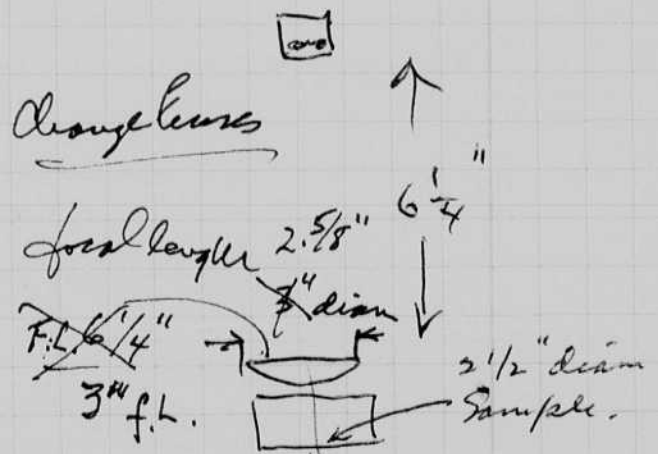 Change lenses
6 1/4"
focal length 2.5/8"
3" diam
F.L. 6 1/4"
3" f.L.
2 1/2" diam
Sample.